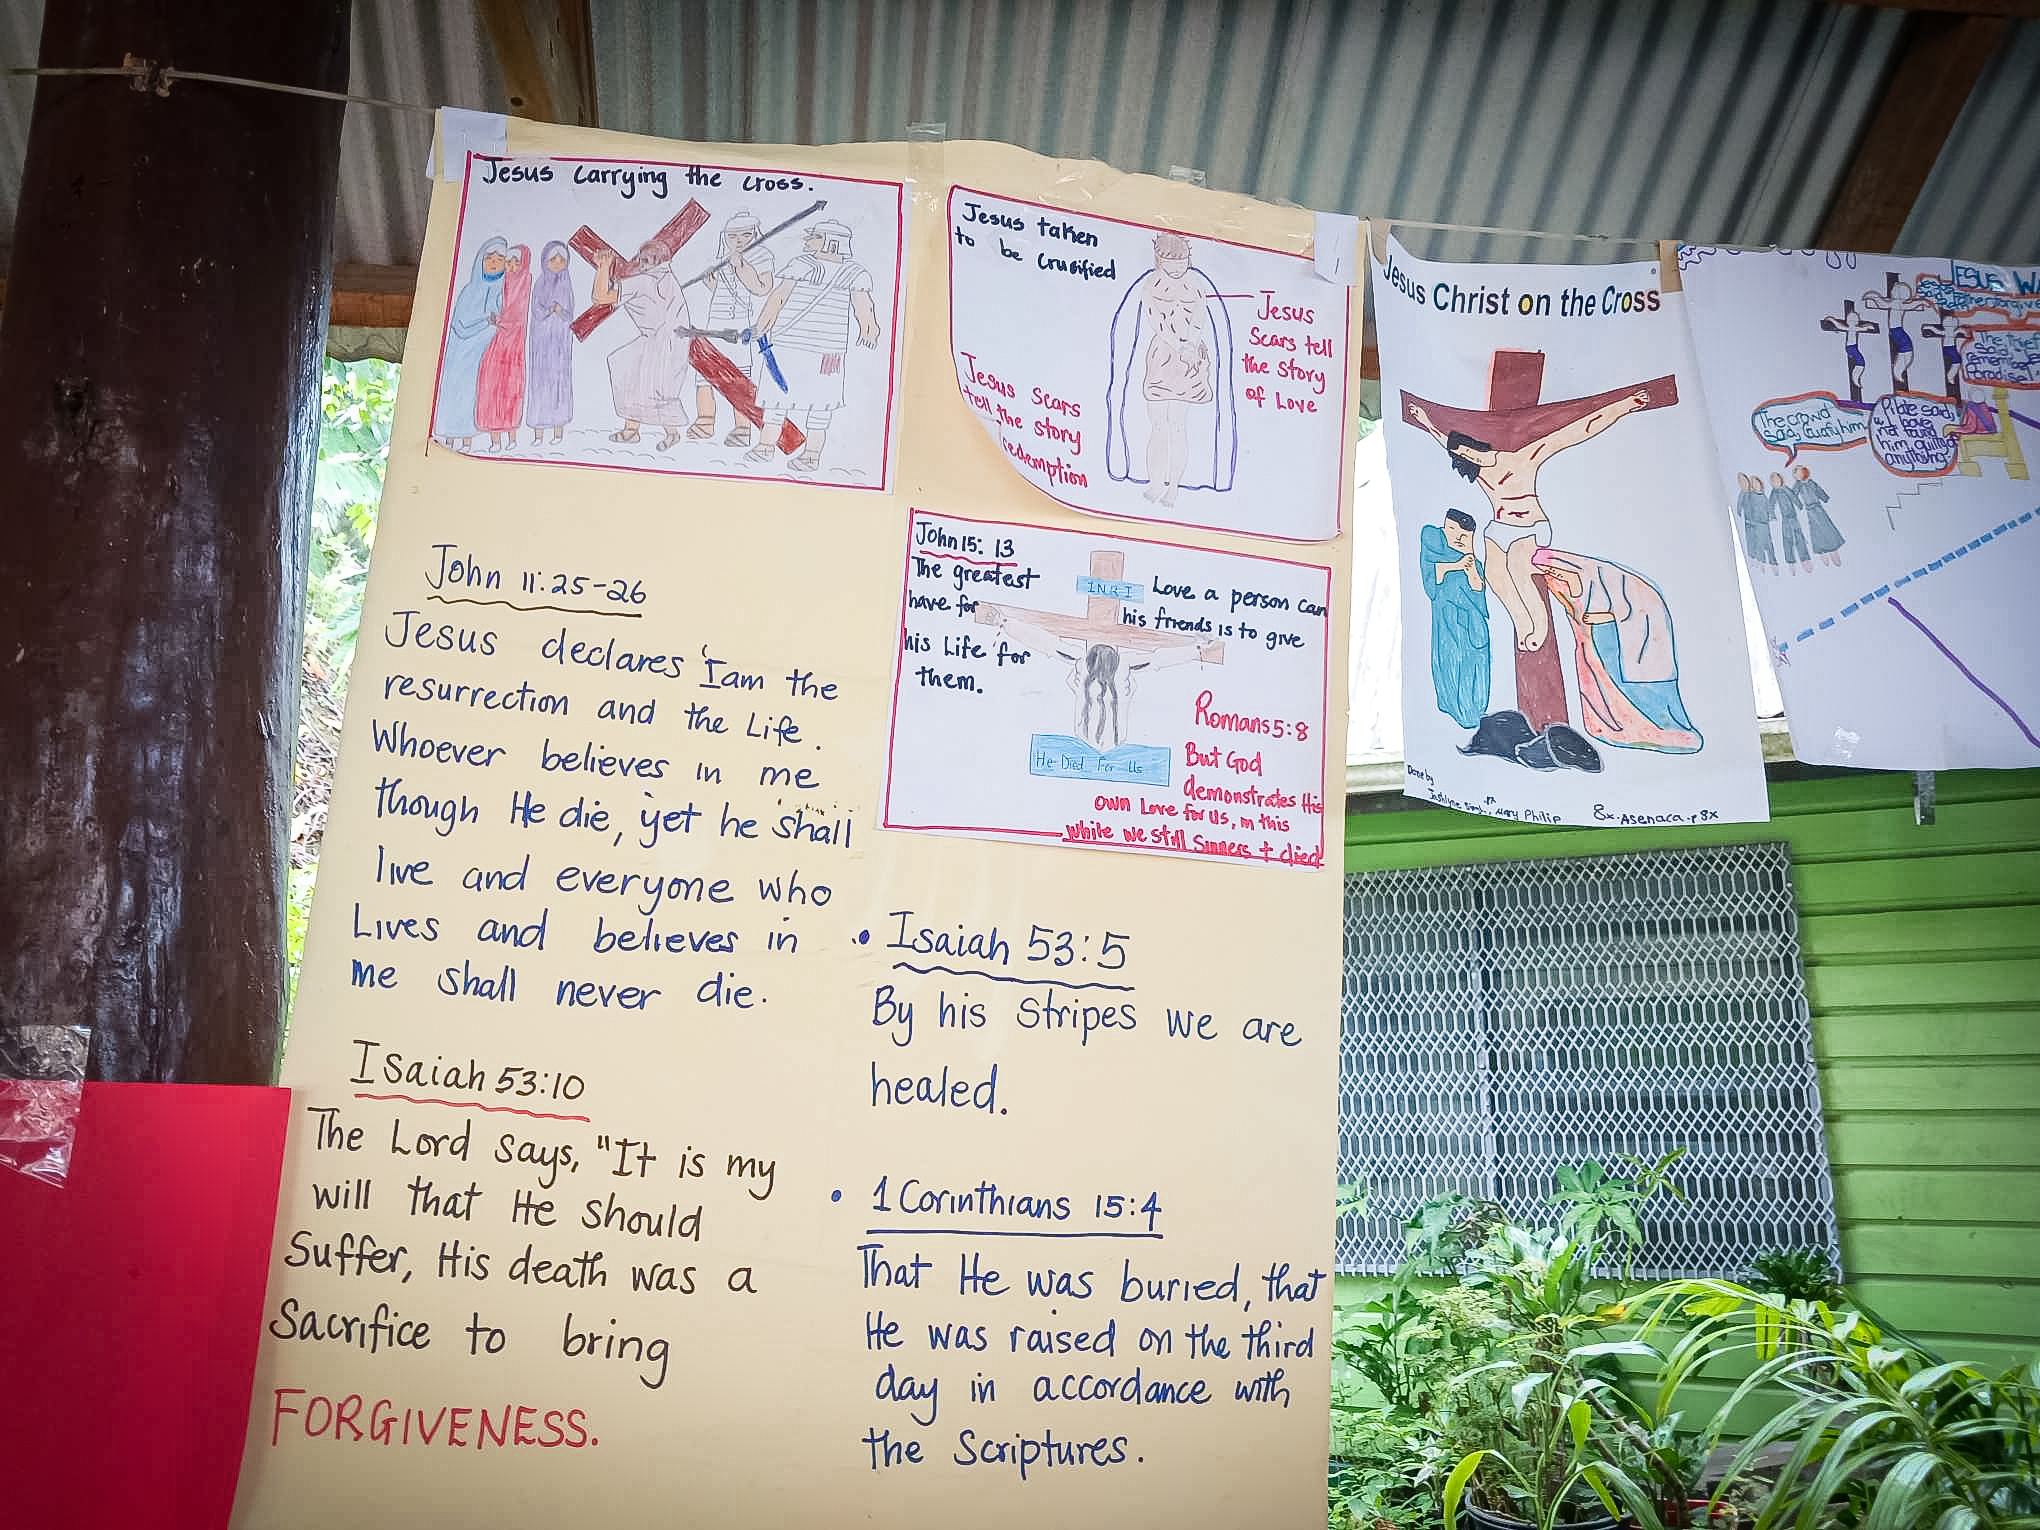 Jesus carrying the cross.
Jesus taken
to be crucified
Jesus
Scars tell
the story
of Love
Jesus Scars
tell the story
redemption
John 15: 13
The greatest
have for
his Life for
them.
INRI
Love a person can
his friends is to give
He Died For Us
Romans 5:8
But God
demonstrates His
own Love for us, in this
while we still Sinners † died
John 11:25-26
Jesus declares 'I am the
resurrection and the Life.
Whoever believes in me
though He die, yet he shall
live and everyone who
Lives and believes in
me shall never die.
Isaiah 53:10
The Lord says, "It is my
will that He should
Suffer, His death was a
Sacrifice to bring
FORGIVENESS.
• Isaiah 53:5
By his Stripes we are
healed.
• 1 Corinthians 15:4
That He was buried, that
He was raised on the third
day in accordance with
the Scriptures.
Jesus Christ on the Cross
Done by
Mary Philip
8x. Asenaca . 8x
The crowd
said, crucify him
Pilate said,
have
not found
him guilty
anything
Paradise